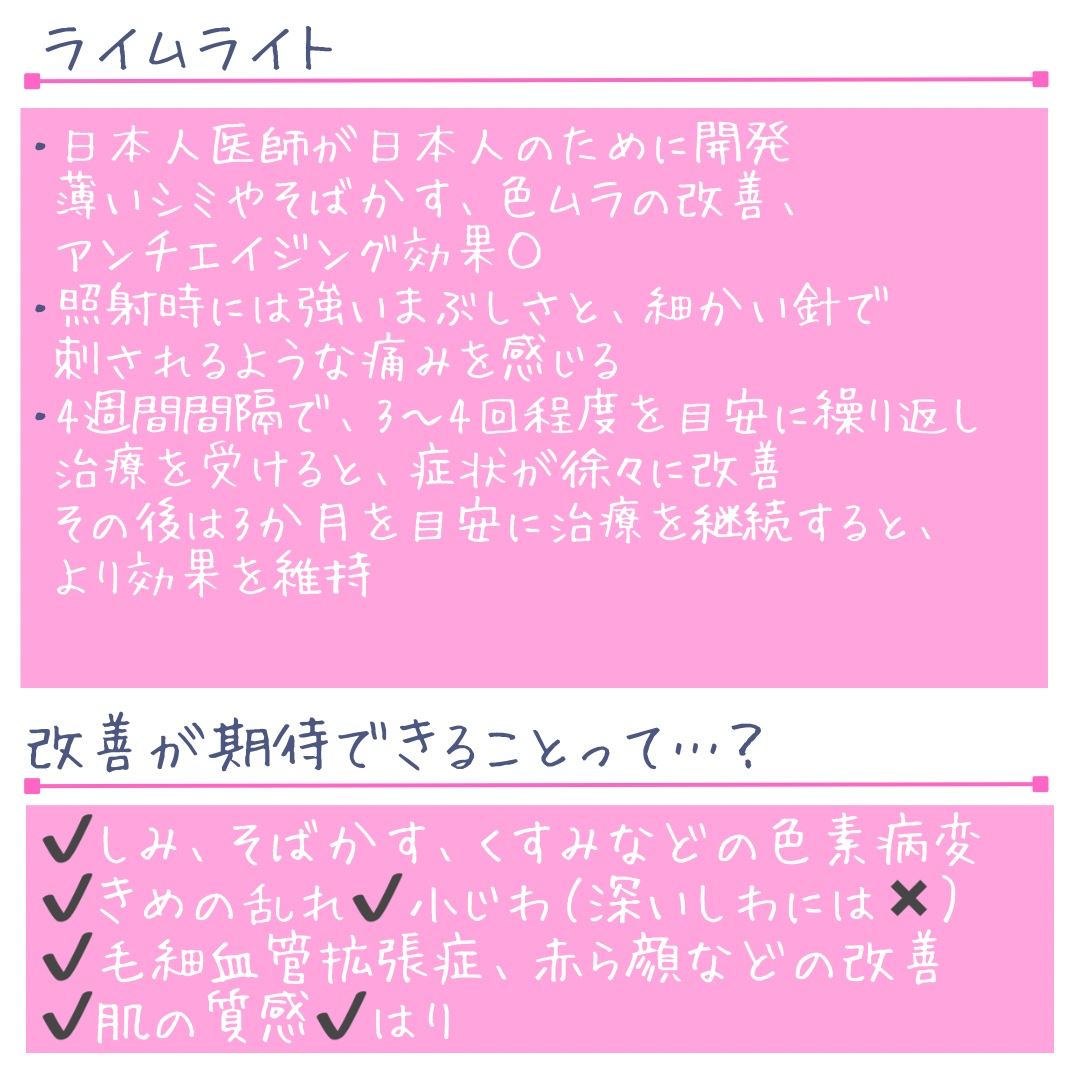 ライムライト
・日本人医師が日本人のために開発
薄いシミやそばかす、色ムラの改善、
アンチエイジング効果〇
・照射時には強いまぶしさと、細かい針で
刺されるような痛みを感じる
・4週間間隔で、3～4回程度を目安に繰り返し
治療を受けると、症状が徐々に改善
その後は3か月を目安に治療を継続すると、
より効果を維持
改善が期待できることって…？
✔しみ、そばかす、くすみなどの色素病変
✔きめの乱れ✔小じわ(深いしわには✖)
✔毛細血管拡張症、赤ら顔などの改善
✔肌の質感✔はり